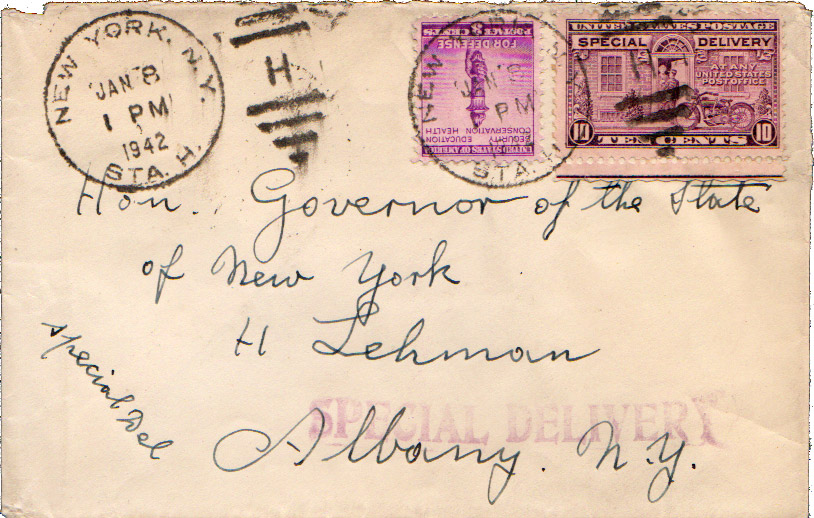 NEW YORK, N.Y.
JAN 8
1 PM
1942
STA. H.
H
UNITED STATES OF AMERICA
EDUCATION
SECURITY
CONSERVATION HEALTH
FOR DEFENSE
POSTAGE 3 CENTS
NEW
JAN 8
PM
STA. H
UNITED STATES POSTAGE
SPECIAL DELIVERY
AT ANY
UNITED STATES
POST OFFICE
10 TEN CENTS 10
Hon. Governor of the State
of New York
H Lehman
special Del
SPECIAL DELIVERY
Albany. N.Y.